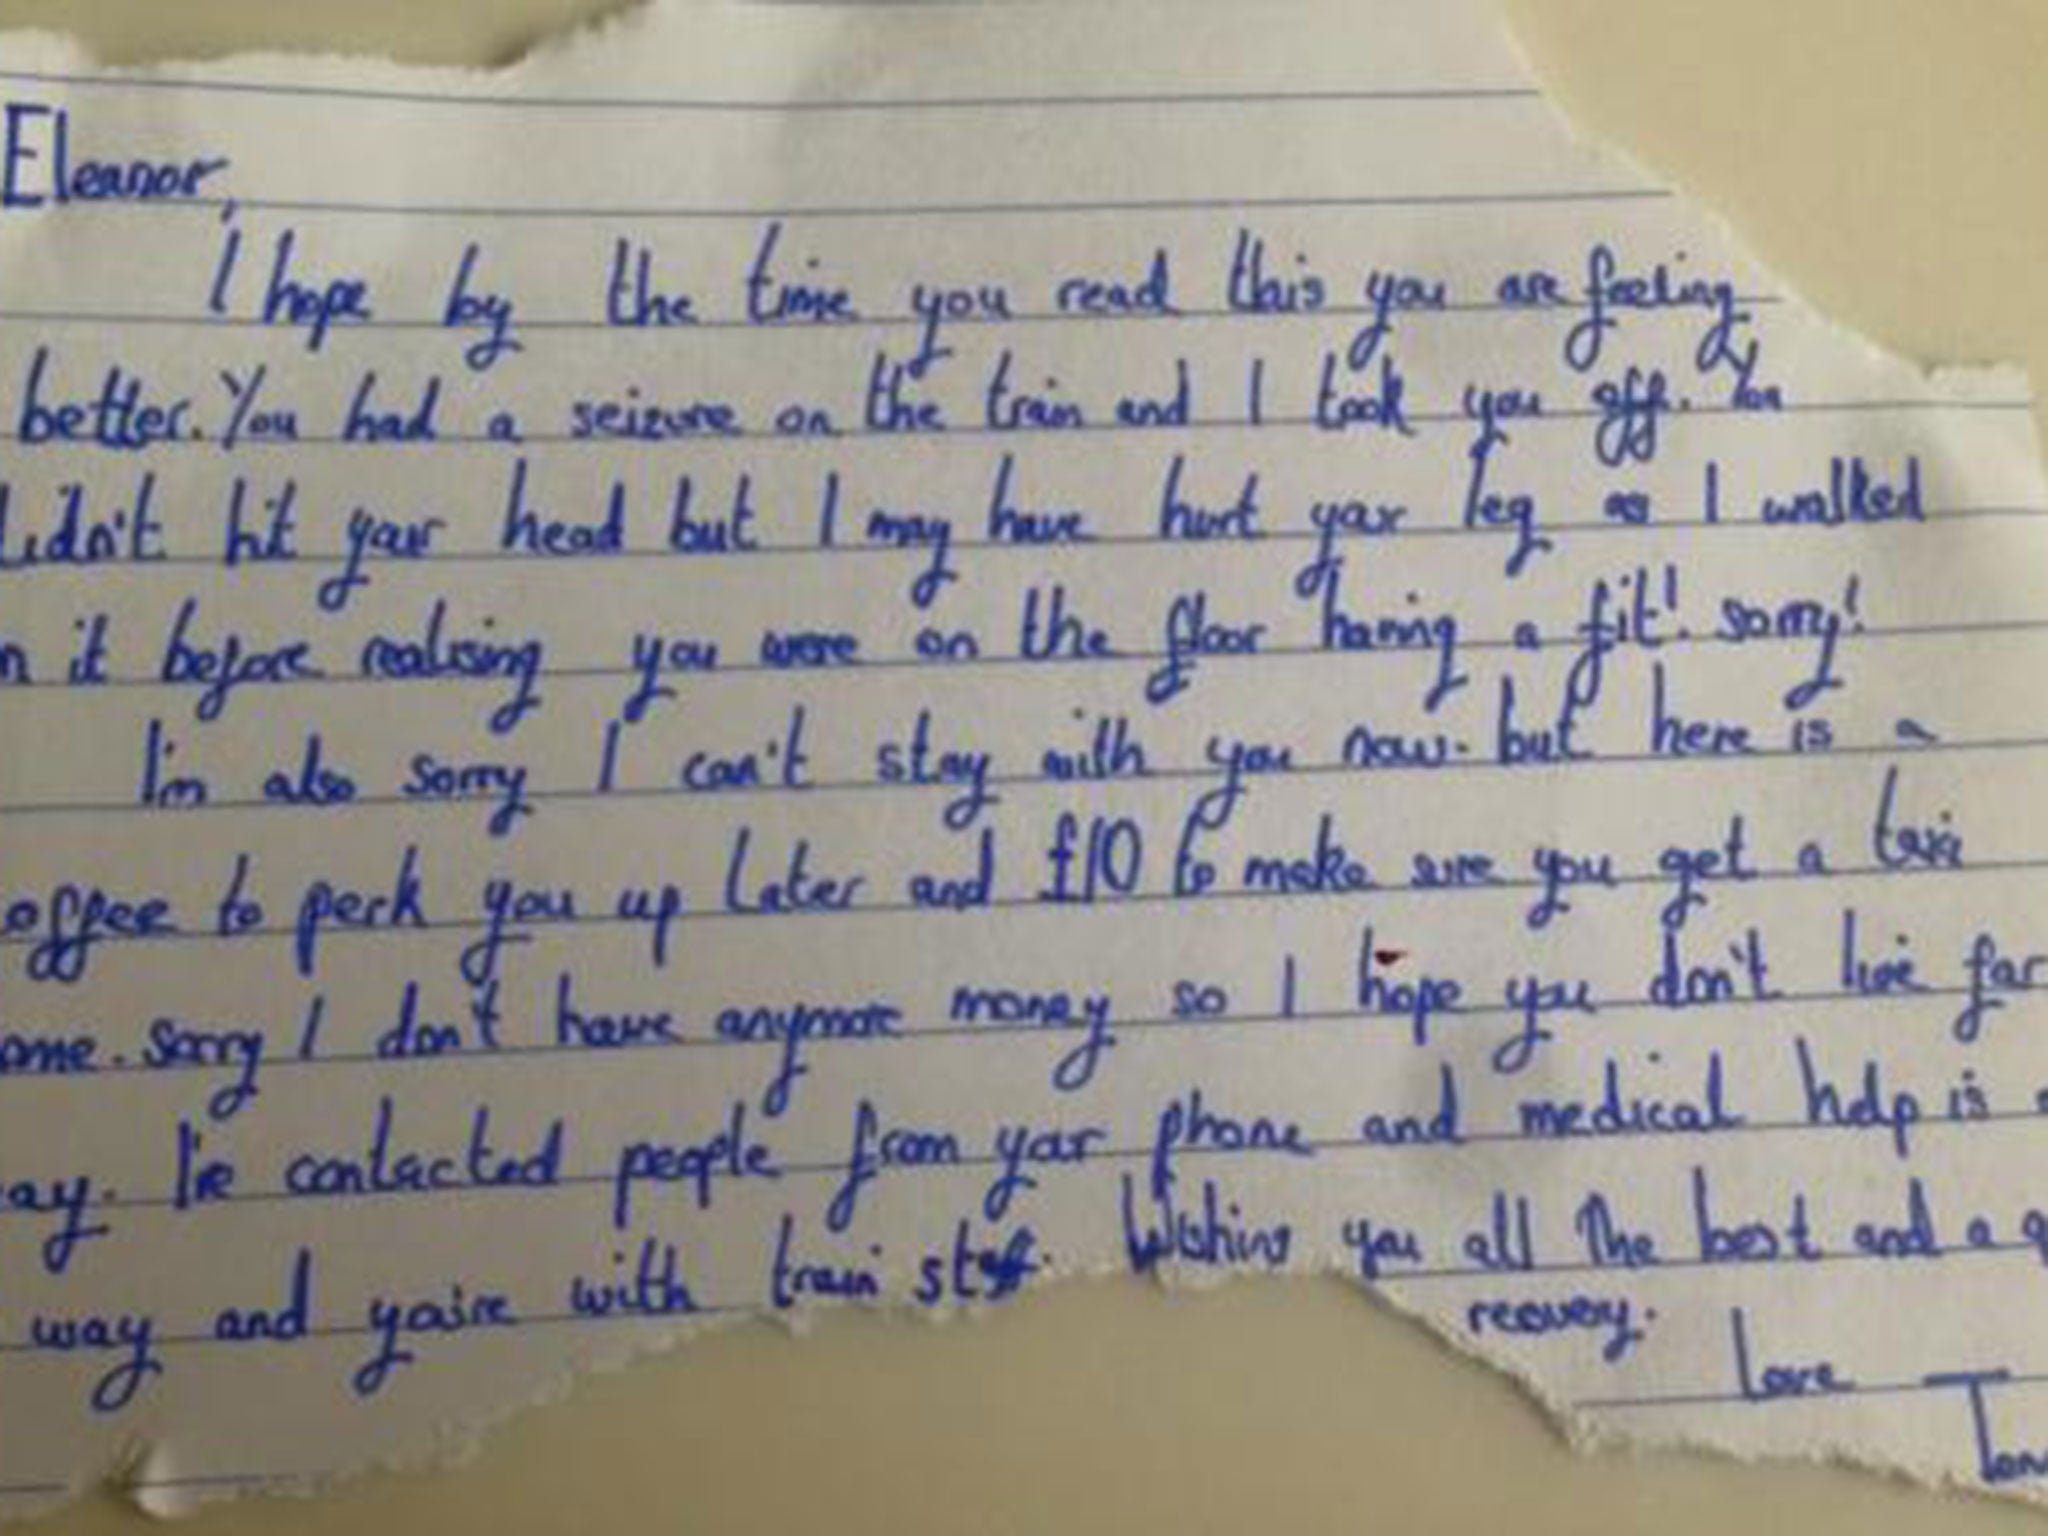 Eleanor,
I hope by the time you read this you are feeling
better. You had a seizure on the train and I took you off. You
didn't hit your head but I may have hurt your leg as I walked
n it before realising you were on the floor having a fit! sorry!
I'm also sorry I can't stay with you now. but here is a
offee to perk you up later and £10 to make sure you get a taxi
ome. Sorry I don't have anymore money so I hope you don't live far
ay. I've contacted people from your phone and medical help is o
way and you're with train staff. Wishing you all the best and a q
recovery.
Love